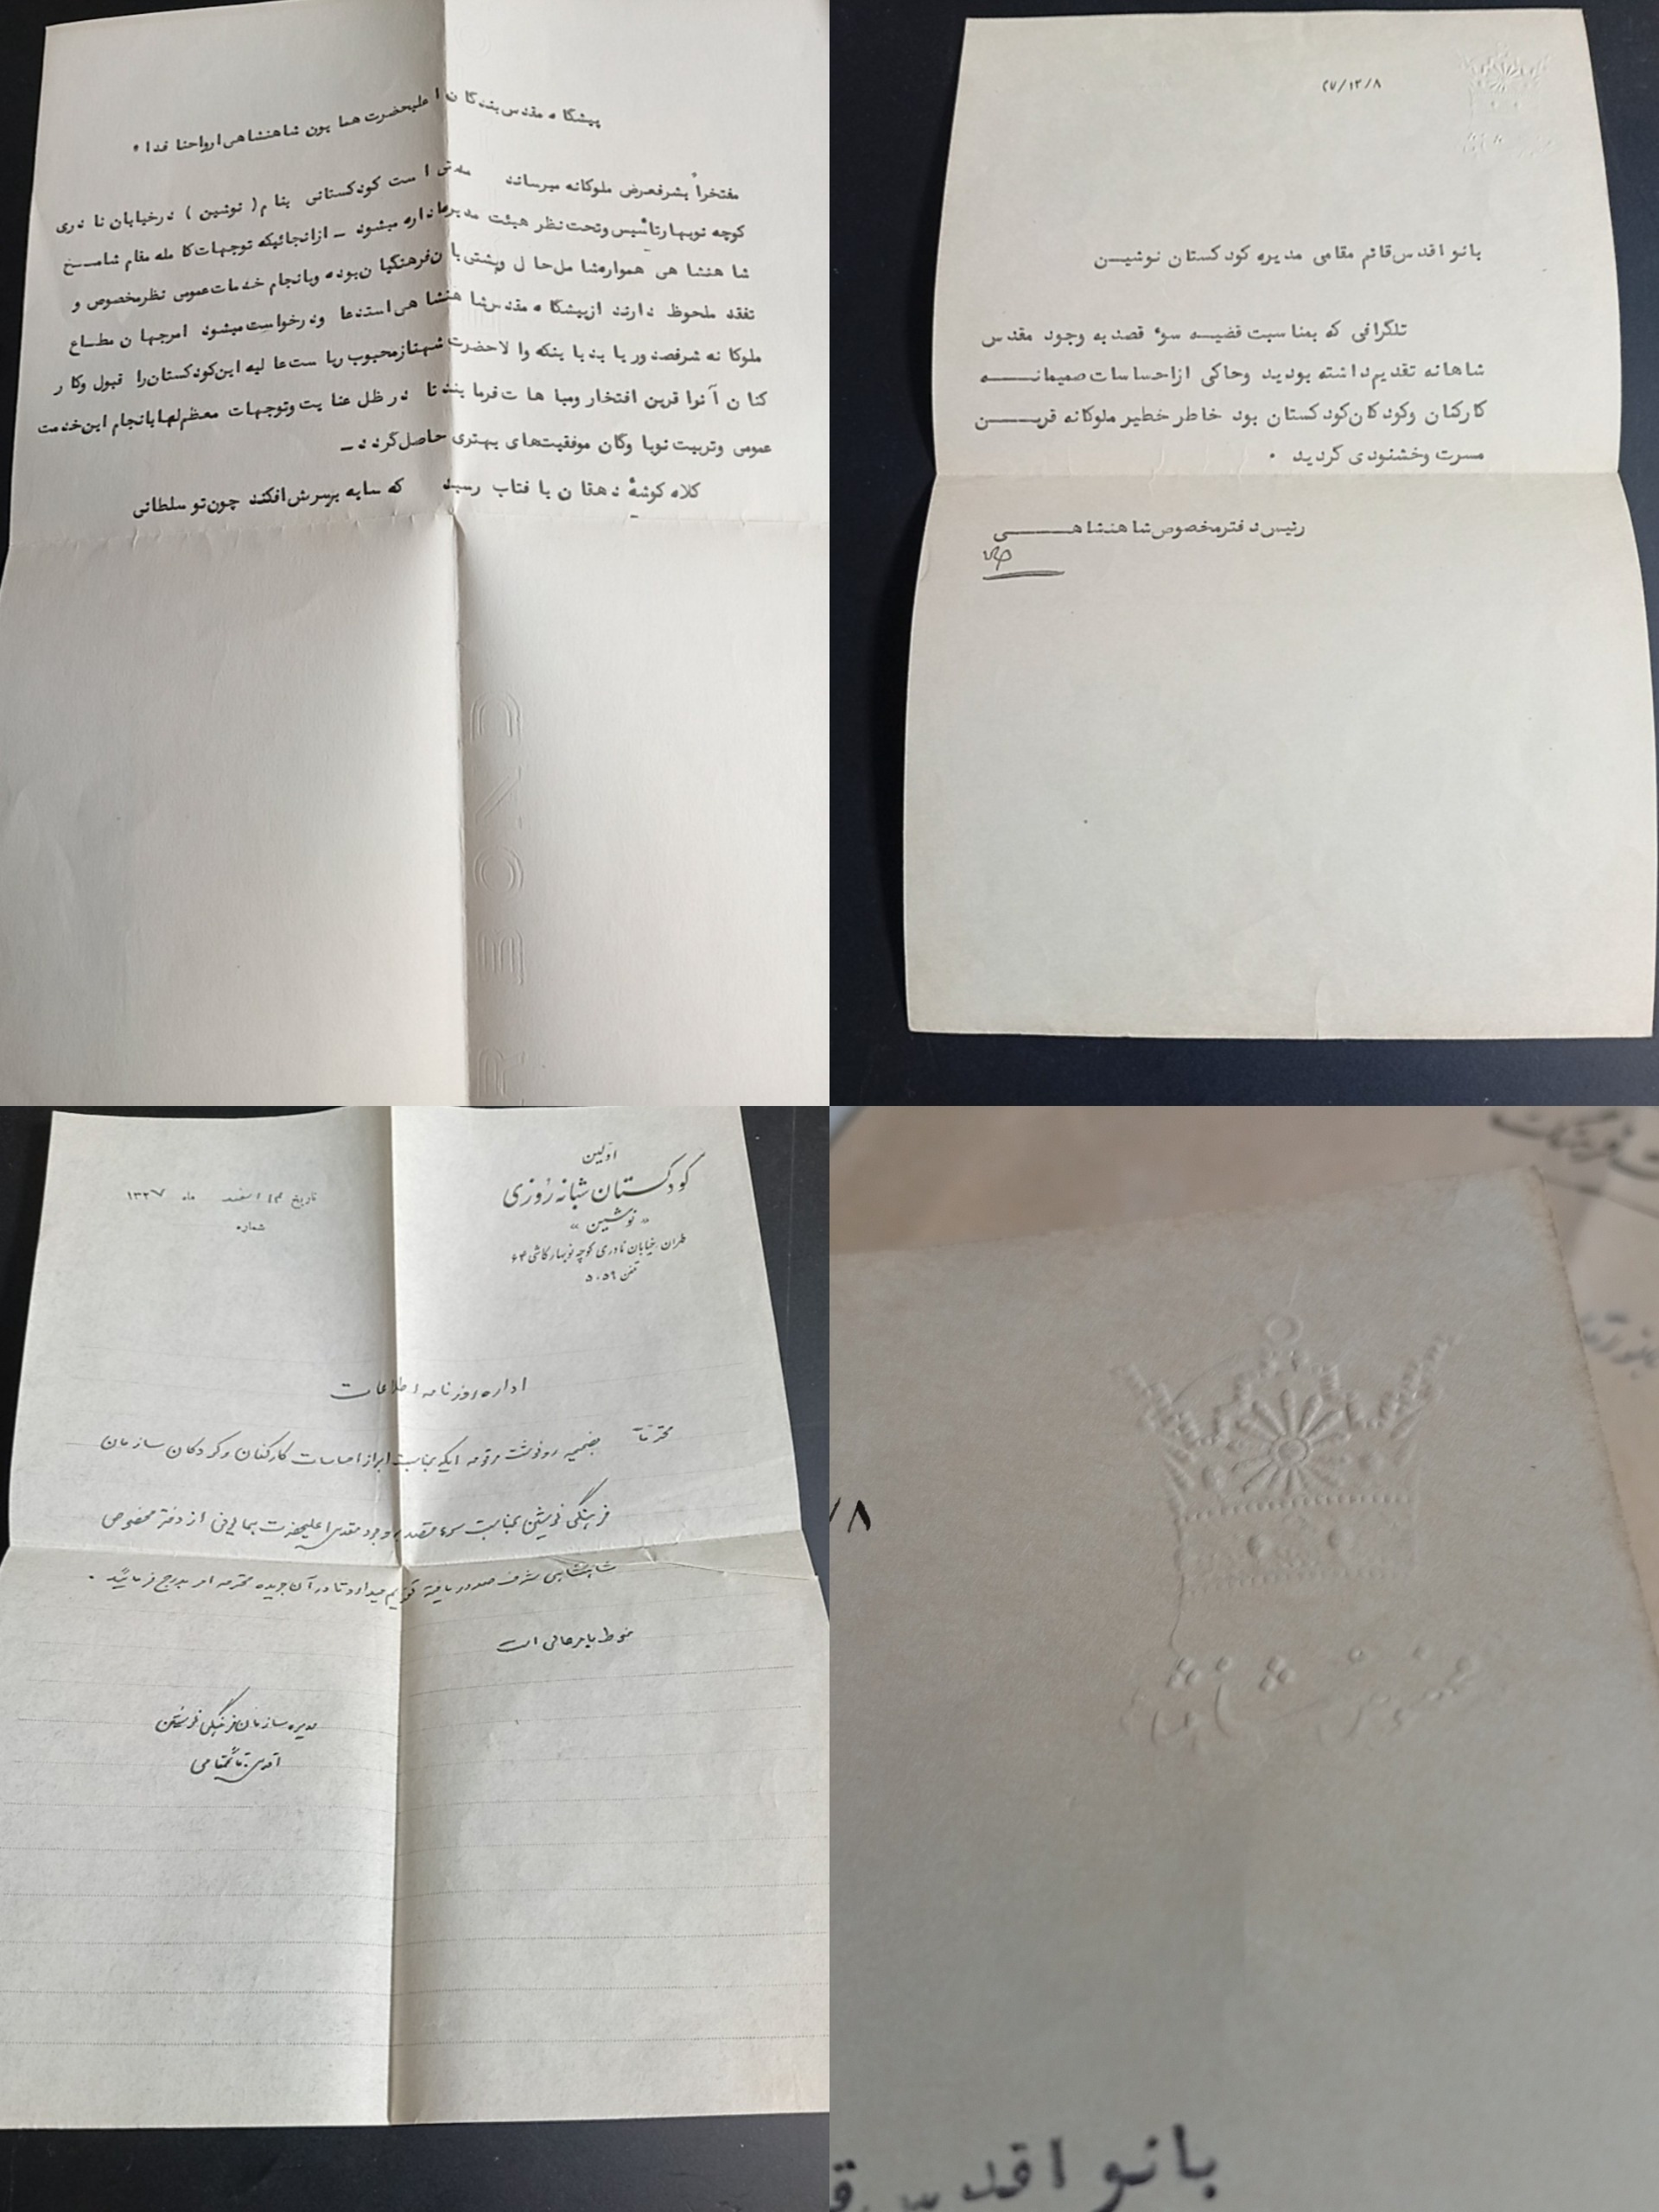 پیشگاه مقدس بندگان اعلیحضرت همایون شاهنشاهی ارواحنا فداه
مفتخراً بشرفعرض ملوکانه میرساند مدتی است کودکستانی بنام ( نوشین ) درخیابان نادری
کوچه نوبهارتأسیس وتحت نظر هیئت مدیره اداره میشود ــ ازانجائیکه توجهات کامله مقام شامــخ
شاهنشاهی همواره شامل حال وپشتیبان فرهنگیان بوده وبانجام خدمات عمومی نظرمخصوص و
تفقد ملحوظ دارند ازپیشگاه مقدس شاهنشاهی استدعا ودرخواست میشود امرجهان مطــاع
ملوکانه شرفصدور یابد باینکه والاحضرت شهنازمحبوب ریاست عالیه این کودکستان را قبول وکار
کنان آنرا قرین افتخار ومباهات فرمایند تا در ظل عنایت وتوجهات معظم لها بانجام این خدمت
عمومی وتربیت نوباوگان موفقیت‌های بهتری حاصل گردد ــ
کلاه گوشهٔ دهقان بافتاب رسید که سایه برسرش افکند چون تو سلطانی
۲۷/۱۲/۸
بانو اقدس قائم مقامی مدیره کودکستان نوشیــن
تلگرافی که بمناسبت قضیــه سوء قصد به وجود مقدس
شاهانه تقدیم داشته بودید وحاکی ازاحساسات صمیمانــــه
کارکنان وکودکان کودکستان بود خاطر خطیر ملوکانه قریــــن
مسرت وخشنودی گردید .
رئیس دفترمخصوص شاهنشاهــــــی
اولین
کودکستان شبانه روزی
« نوشین »
طهران خیابان نادری کوچه نوبهار کاشی ۶۳
تلفن ۵۰۵۹
تاریخ ۱۴ اسفند ماه ۱۳۲۷
شماره
اداره روزنامه اطلاعات
محترماً بضمیمه رونوشت مرقومه ایکه بمناسبت ابراز احساسات کارکنان و کودکان سازمان
فرهنگی نوشین بمناسبت سوء قصد بوجود مقدس اعلیحضرت همایونی از دفتر مخصوص
شاهنشاهی شرف صدور یافته تقدیم میدارد تا در آن جریده محترمه امر بدرج فرمائید .
منوط بامر عالی است
مدیره سازمان فرهنگی نوشین
اقدس قائم مقامی
/۸
مخصوص شاهنشاهی
بانو اقدس ق